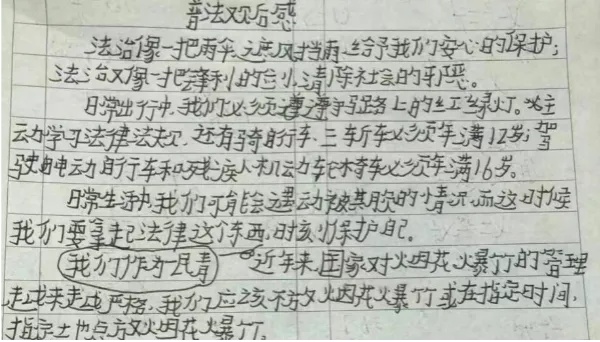 普法观后感
法治像一把雨伞,遮风挡雨,给予我们安心的保护;
法治又像一把锋利的 ,清除社会的邪恶。
日常出行中,我们必须遵 马路上的红绿灯。主
动学习法律法规,还有骑自行车、三轮车必须年满12岁;驾
驶电动自行车和残疾人机动轮椅车必须年满16岁。
日常生活中,我们可能会遇 被欺 的情况,而这时候
我们要拿起法律这个东西,时刻保护自己。
我们作为 近年来,国家对火烟花火爆竹的管理
越来越严格,我们应该不放火烟花火爆竹或在指定时间、
指定地点放火烟花火爆竹。